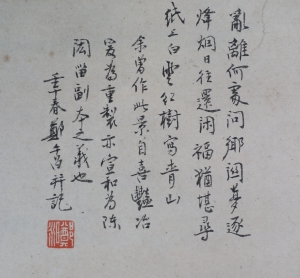 亂離何處問鄉關夢逐
烽烟日往還閑福猶堪尋
紙上白雲紅樹寫青山
余曾作此景自喜艷冶
爰為重製亦宣和為陳
閎留副本之義也
季春鄭午昌并記